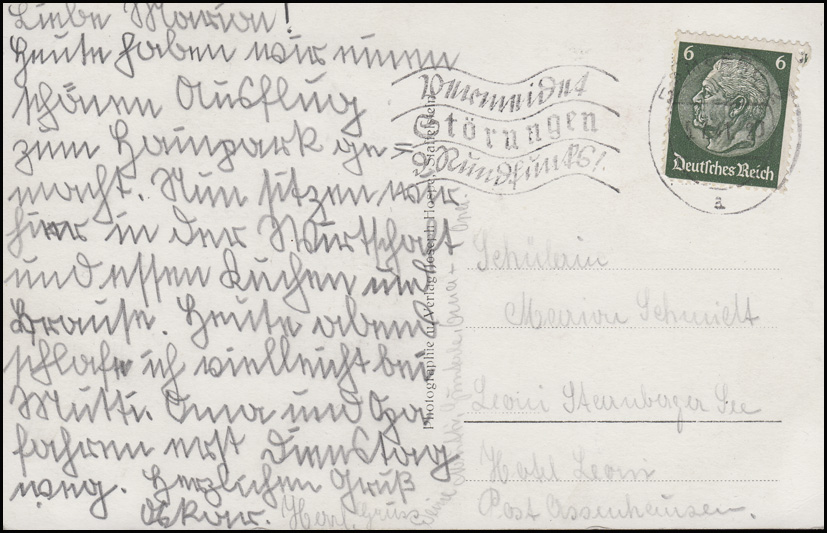 Liebe Marion!
Heute haben wir einen
schönen Ausflug
zum Hainpark ge=
macht. Nun sitzen wir
hier in der Wirtschaft
und essen Kuchen und
Brause. Heute abend
schlafe ich vielleicht bei
Mutti. Oma und Opa
fahren erst Dienstag
weg. Herzlichen Gruß
Oskar.
Vermeidet
Störungen
d. Rundfunks!
6 6
Deutsches Reich
a
Photographie u. Verlag Joseph
Schülerin
Marion Schmidt
Leoni Starnberger See
Hotel Leoni
Post Assenhausen.